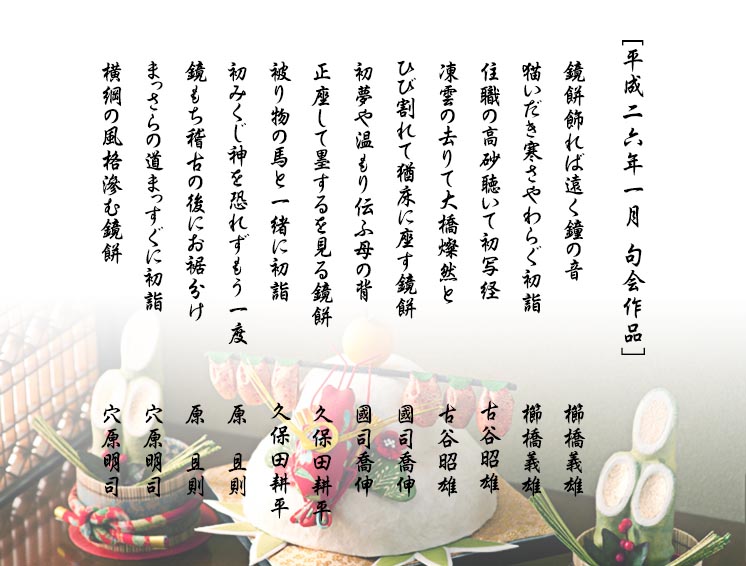 ［平成二六年一月 句会作品］
鏡餅飾れば遠く鐘の音 櫛橋義雄
猫いだき寒さやわらぐ初詣 櫛橋義雄
住職の高砂聴いて初写経 古谷昭雄
凍雲の去りて大橋燦然と 古谷昭雄
ひび割れて猶床に座す鏡餅 國司喬伸
初夢や温もり伝ふ母の背 國司喬伸
正座して墨するを見る鏡餅 久保田耕平
被り物の馬と一緒に初詣 久保田耕平
初みくじ神を恐れずもう一度 原 且則
鏡もち稽古の後にお裾分け 原 且則
まっさらの道まっすぐに初詣 穴原明司
横綱の風格滲む鏡餅 穴原明司